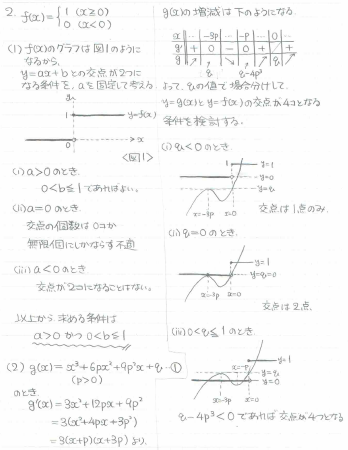 2. f(x) = { 1 (x≧0)
0 (x<0)
(1) f(x)のグラフは図1のように
なるから、
y=ax+bとの交点が2つに
なる条件を、aを固定して考える
y
1
y=f(x)
0
x
<図1>
(i) a>0のとき.
0<b≦1であればよい。
(ii) a=0のとき.
交点の個数は0コか
無限個にしかならず不適
(iii) a<0のとき
交点が2コになることはない。
以上から 求める条件は
a>0 かつ 0<b≦1
(2) g(x) = x³+6px²+9p²x+q …①
(p>0)
のとき.
g'(x) = 3x²+12px+9p²
= 3(x²+4px+3p²)
= 3(x+p)(x+3p) より.
g(x)の増減は下のようになる.
x … -3p … -p … 0 …
g' + 0 - 0 + + +
g ↗ q ↘ q-4p³ ↗ q ↗
よって、qの値で場合分けして.
y=g(x)とy=f(x)の交点が4コとなる
条件を検討する.
(i) q<0のとき.
1
y=1
y=0
y=q
x=-3p
x=0
交点は1点のみ.
(ii) q=0のとき.
y=1
y=q=0
x=-3p
x=0
交点は2点.
(iii) 0<q≦1のとき.
x=-p
y=1
y=q
y=0
x=-3p
x=0
q-4p³<0であれば交点が4つとなる